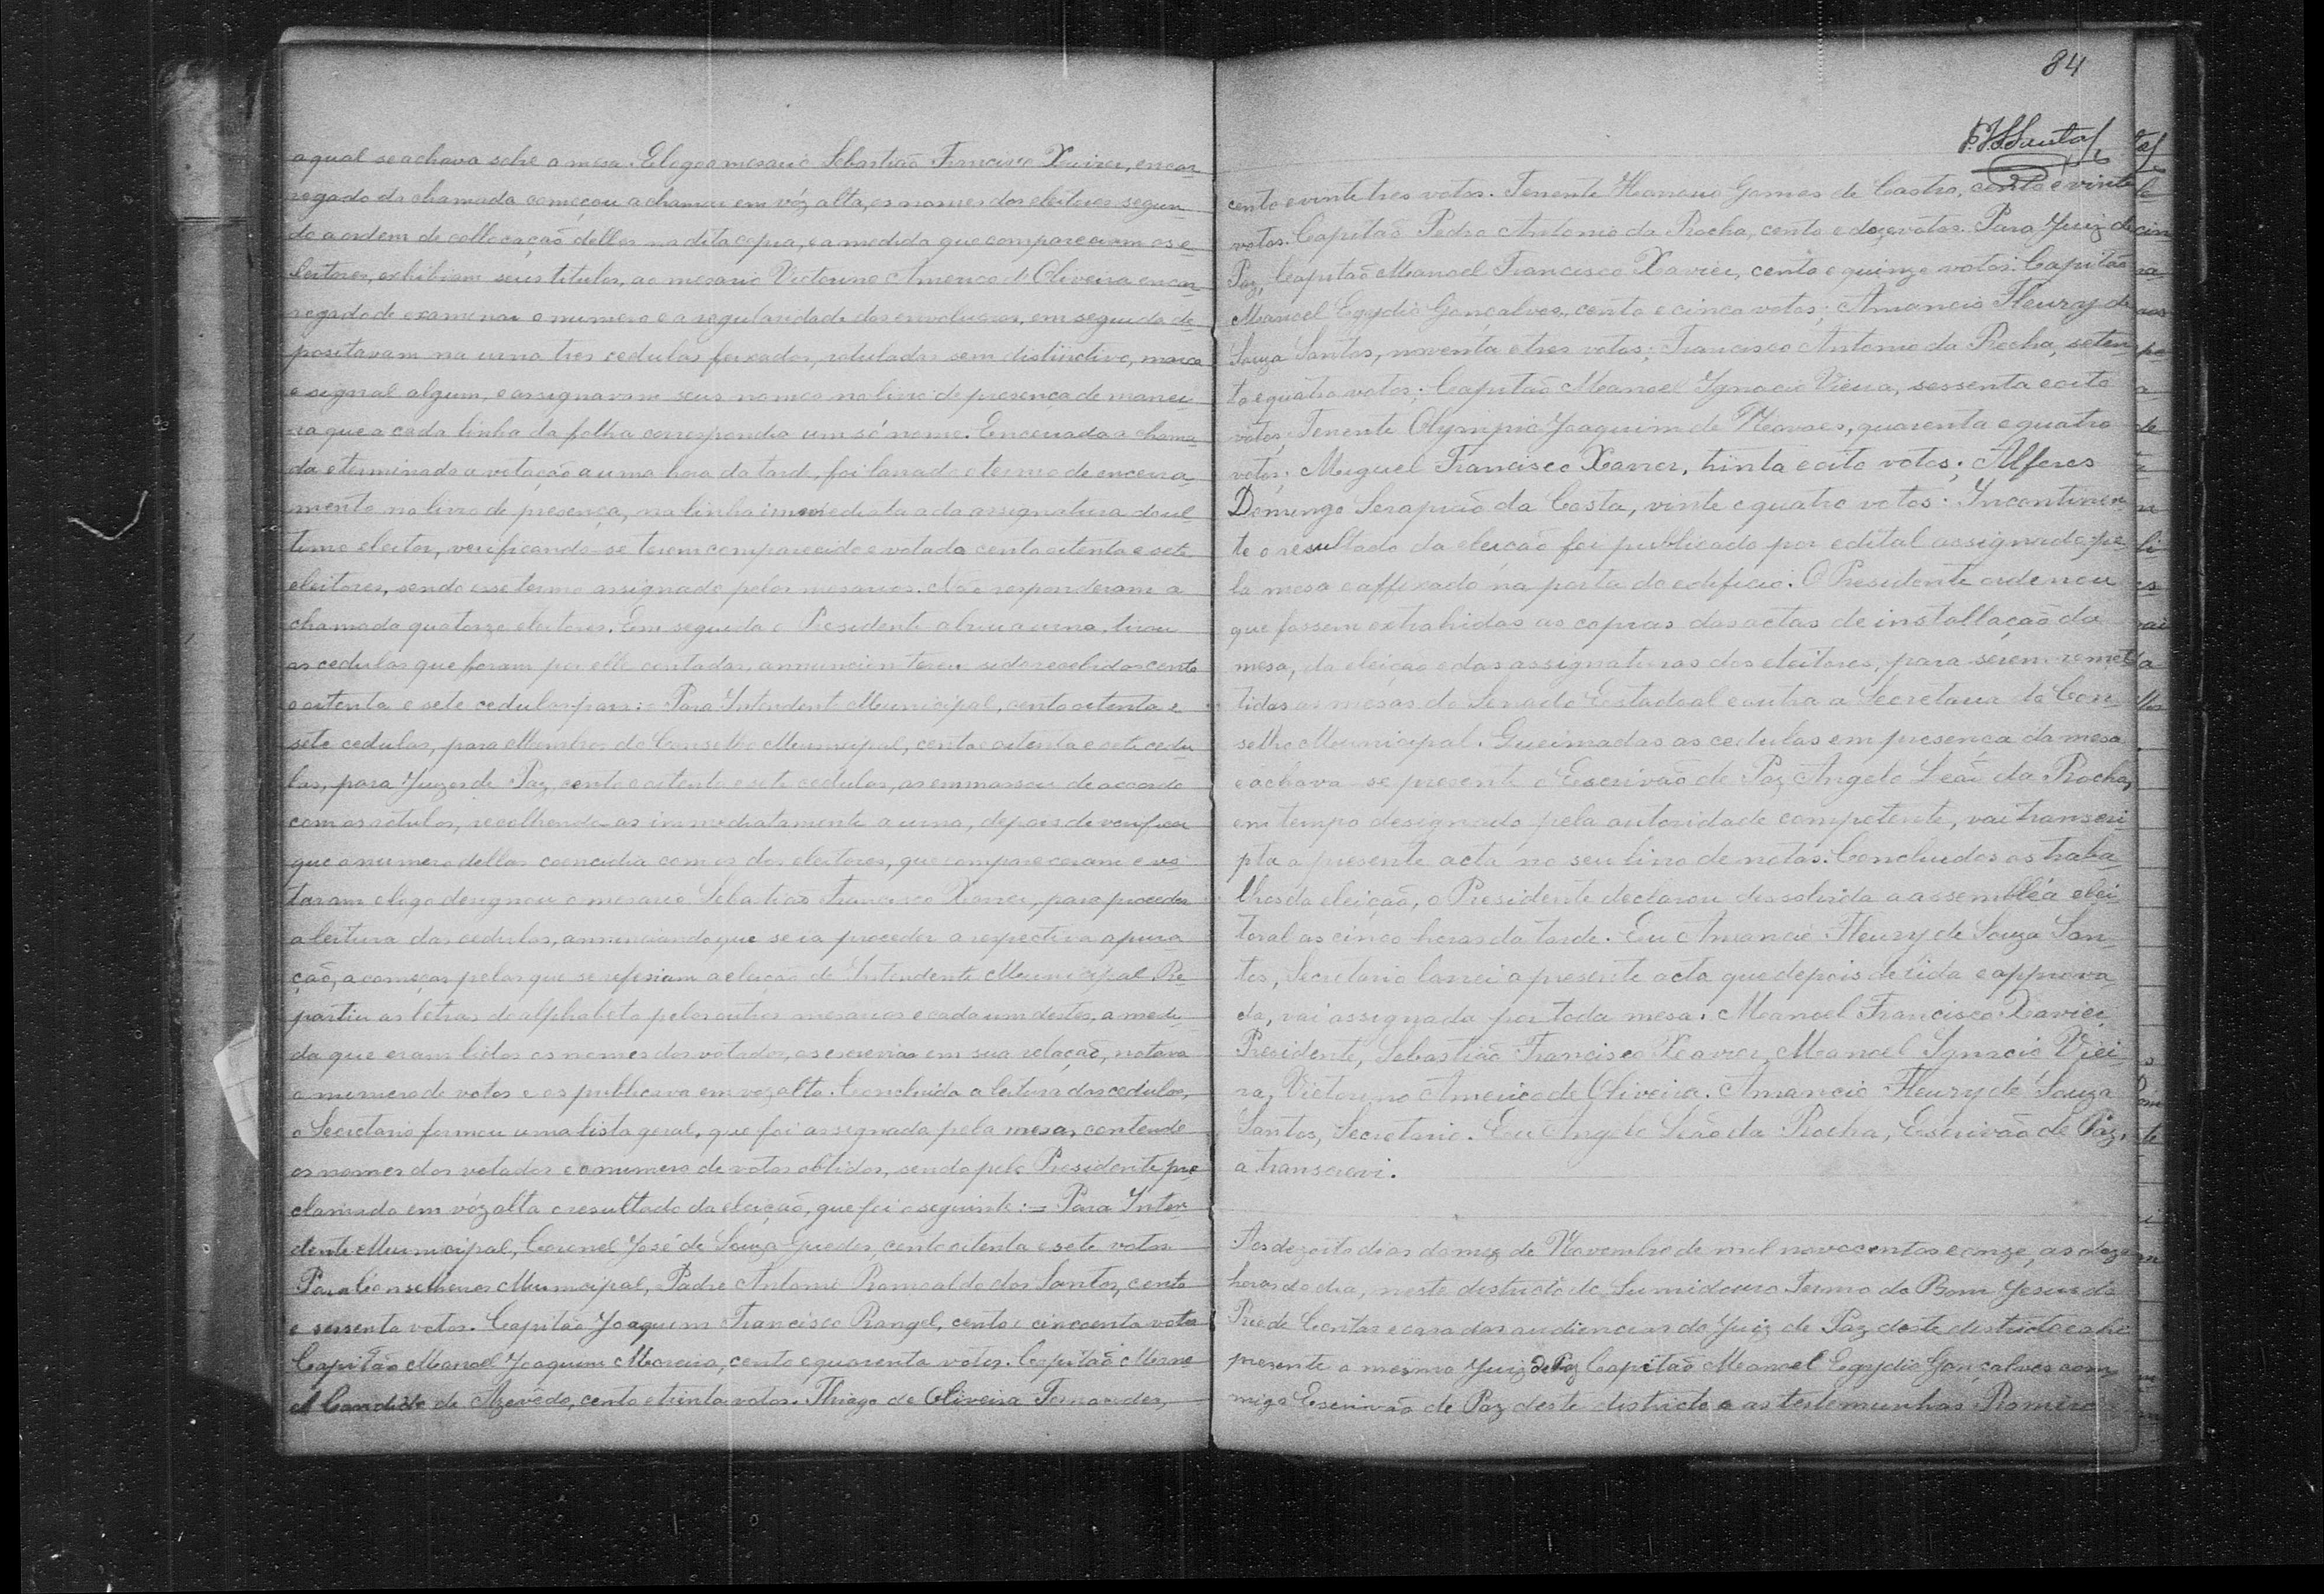 a qual se achava sobre a mesa. E logo o mesario Sebastião Francisco Xavier, encar-
regado da chamada começou a chamar em vóz alta, os nomes dos eleitores segun-
do a ordem de collocação delles na dita copia, e a medida que compareciam os e-
leitores, exhibiam seus titulos, ao mesario Victorino Americo de Oliveira encar-
regado de examinar o numero e a regularidade dos envolucros, em seguida de-
positavam na urna tres cedulas feixadas, rotuladas sem distinctivo, marca
e signal algum, e assignavam seus nomes no livro de presença de manei-
ra que a cada linha da folha correspondia um só nome. Encerrada a chama-
da e terminada a votação a uma hora da tard, foi lavrado o termo de encerra-
mento no livro de presença, na linha immediata a da assignatura do ul-
timo eleitor, verificando-se terem comparecido e votado cento oitenta e sete
eleitores, sendo esse termo assignado pelos mesarios. Não responderam a
chamada quatorze eleitores. Em seguida o Presidente abriu a urna, tirou
as cedulas que foram por elle contadas, annunciou terem sido recebidas cento
e oitenta e sete cedulas para: Para Intendente Municipal, cento oitenta e
sete cedulas, para Membros do Conselho Municipal, cento e oitenta e sete cedu-
las, para Juizes de Paz, cento e oitenta e sete cedulas, as emmassou de accordo
com os rotulos, recolhendo-as immediatamente a urna, depois de verificar
que o numero dellas coencidia com os dos eleitores, que compareceram e vo-
taram e logo designou o mesario Sebastião Francisco Xavier, para proceder
a leitura das cedulas, annunciando que se ia proceder a respectiva apura-
ção, a começar pelas que se referiam a eleição de Intendente Municipal. Re-
partiu as letras do alphabeto pelos outros mesarios e cada um destes, a medi-
da que eram lidos os nomes dos votados, os escrevia em sua relação, notava
o numero de votos e os publicava em voz alta. Concluida a leitura das cedulas,
o Secretario formou uma lista geral, que foi assignada pela mesa, contendo
os nomes dos votados e o numero de votos obtidos, sendo pelo Presidente pro-
clamado em vóz alta o resultado da eleição, que foi o seguinte := Para Inten-
dente Municipal, Coronel José de Souza Guedes, cento oitenta e sete votos.
Para Conselheiros Municipal, Padre Antonio Romoaldo dos Santos, cento
e sessenta votos. Capitão Joaquim Francisco Rangel, cento e cincoenta votos
Capitão Manoel Joaquim Moreira, cento e quarenta votos. Capitão Mano-
el Candido de Azevêdo, cento e trinta votos. Thiago de Oliveira Fernandes,
84
cento e vinte tres votos. Tenente Gomes de Castro, cento e vinte
votos. Capitão Pedro Antonio da Rocha, cento e doze votos. Para Juiz de
Paz, Capitão Manoel Francisco Xavier, cento e quinze votos. Capitão
Manoel Egydio Gonçalves, cento e cinco votos; Amancio Fleury de
Souza Santos, noventa e tres votos; Francisco Antonio da Rocha, seten-
ta e quatro votos; Capitão Manoel Ignacio Vieira, sessenta e oito
votos, Tenente Olympio Joaquim de Novaes, quarenta e quatro
votos; Miguel Francisco Xavier, trinta e oito votos; Alferes
Domingo Serapião da Costa, vinte e quatro votos. Incontinen-
te o resultado da eleição foi publicado por edital assignado pe-
la mesa e affixado na porta do edificio. O Presidente ordenou
que fossem extrahidas as copias das actas de installação da
mesa, da eleição e das assignaturas dos eleitores, para serem remet-
tidas as mesas do Senado Estadoal e outra a Secretaria do Con-
selho Municipal. Queimadas as cedulas em presença da mesa
e achava-se presente o Escrivão de Paz Angelo Leão da Rocha,
em tempo designado pela autoridade competente, vai transcri-
pta a presente acta no seu livro de notas. Concluidos os traba-
lhos da eleição, o Presidente declarou dissolvida a assembléa elei-
toral as cinco horas da tarde. Eu Amancio Fleury de Souza San-
tos, Secretario lavrei a presente acta que depois de lida e approva-
da, vai assignada por toda mesa. Manoel Francisco Xavier
Presidente, Sebastião Francisco Xavier, Manoel Ignacio Viei-
ra, Victorino Americo de Oliveira. Amancio Fleury de Souza
Santos, Secretario. Eu Angelo Leão da Rocha, Escrivão de Paz,
a transcrevi.
Aos dezoito dias do mez de Novembro de mil novocentos e onze, as doze
horas do dia, neste districto do Sumidouro Termo do Bom Jesus do
Rio de Contas e casa das audiencias do Juiz de Paz deste districto e ahi
presente o mesmo Juiz de Paz Capitão Manoel Egydio Gonçalves com-
migo Escrivão de Paz deste districto e as testemunhas Romiro